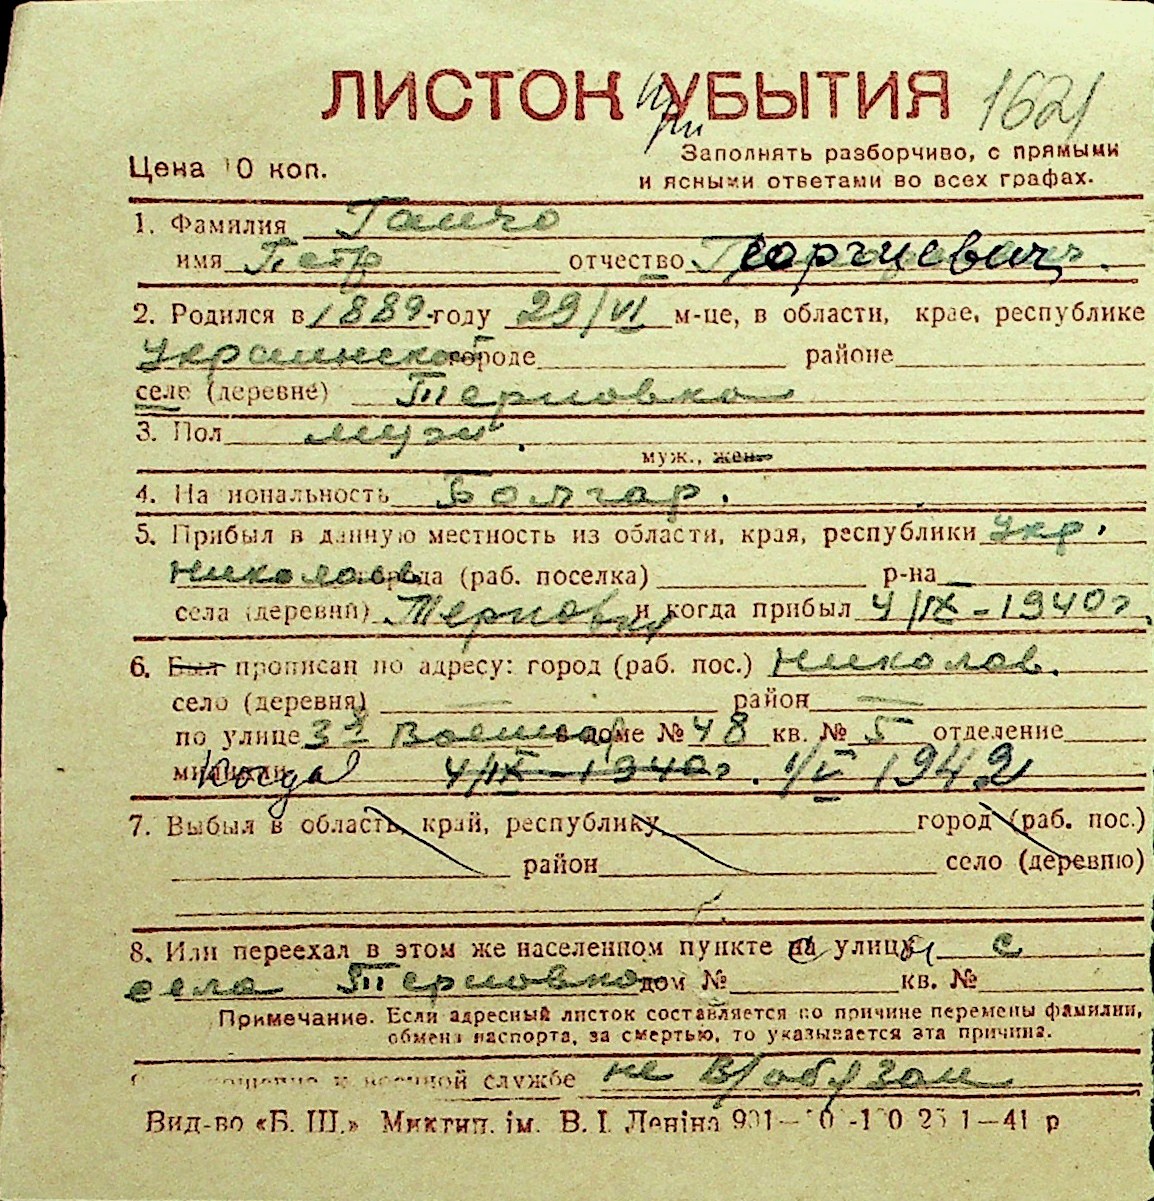 ЛИСТОК при УБЫТИЯ 1621
Цена 10 коп.
Заполнять разборчиво, с прямыми
и ясными ответами во всех графах.
1. Фамилия Ганчо
имя Петр отчество Георгиевич.
2. Родился в 1889-году 29/VI м-це, в области, крае, республике
Украинской городе районе
селе (деревне) Терновка
3. Пол муж.
муж., жен.
4. На иональность Болгар.
5. Прибыл в данную местность из области, края, республики Укр.
Николаев города (раб. поселка) р-на —
села (деревни) Терновки и когда прибыл 4/IX - 1940 г.
6. Был прописан по адресу: город (раб. пос.) Николаев.
село (деревня) — район —
по улице 3я Военная в доме № 48 кв. № 5 отделение
милиции Когда 4/IX - 1940 г. 1/V 1942
7. Выбыл в область, край, республику город (раб. пос.)
район село (деревню)
8. Или переехал в этом же населенном пункте на улицу с
села Терновка дом № кв. №
Примечание. Если адресный листок составляется по причине перемены фамилии,
обмена паспорта, за смертью, то указывается эта причина.
к военной службе не в/обязан
Вид-во «Б. Ш.» Миктип. ім. В. І. Леніна 1—41 р